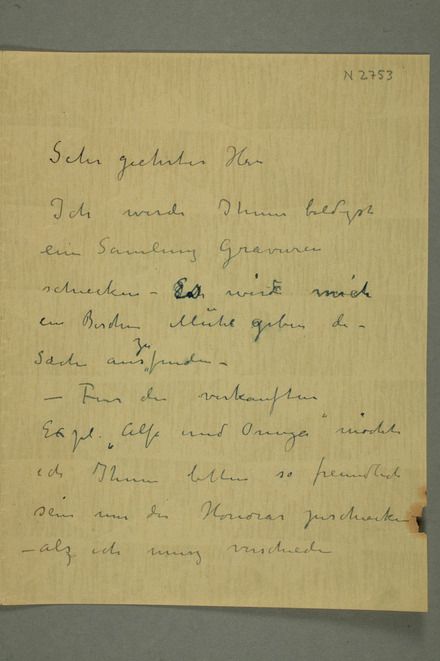 N 2753
Sehr geehrter Herr
Ich werde Ihnen baldigst
eine Samlung Gravuren
schiecken – Es wird mich
ein Bischen Mühe geben die
Sache auszufinden –
– Fur die verkauften
Expl. „Alfa und Omega" möchte
ich Ihnen bitten so freundlich
sein mir das Honorar zuschiecken
– ich verschiedene